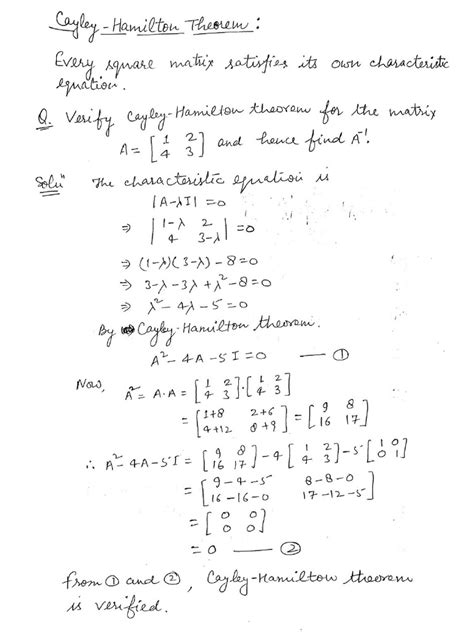 Cayley-Hamilton Theorem:
Every square matrix satisfies its own characteristic
equation.
Q. Verify Cayley-Hamilton theorem for the matrix
A = [1 2; 4 3] and hence find A⁻¹.
Soluⁿ The characteristic equation is
|A-λI| = 0
⇒ |1-λ 2; 4 3-λ| = 0
⇒ (1-λ)(3-λ) - 8 = 0
⇒ 3-λ-3λ+λ²-8 = 0
⇒ λ²-4λ-5 = 0
By Cayley-Hamilton theorem.
A²-4A-5I = 0 — ①
Now, A² = A·A = [1 2; 4 3]·[1 2; 4 3]
= [1+8 2+6; 4+12 8+9] = [9 8; 16 17]
∴ A²-4A-5I = [9 8; 16 17] - 4[1 2; 4 3] - 5[1 0; 0 1]
= [9-4-5 8-8-0; 16-16-0 17-12-5]
= [0 0; 0 0]
= 0 — ②
from ① and ②, Cayley-Hamilton theorem
is verified.